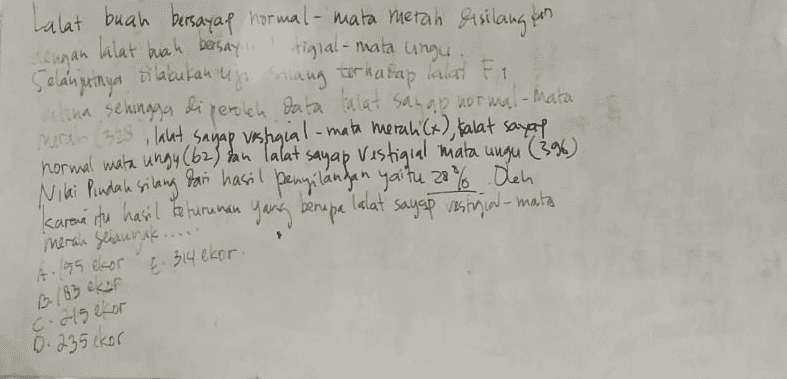 Lalat buah bersayap normal - mata merah disilangkan
dengan lalat buah bersay tigial - mata ungu.
Selanjutnya dilakukan uji silang terhadap lalat F1
betina sehingga diperoleh data lalat sayap normal - mata
merah (328, lalat sayap vestigial - mata merah (x), lalat sayap
normal mata ungu (62) dan lalat sayap vestigial mata ungu (396)
Nilai Pindah silang dari hasil penyilangan yaitu 28% Oleh
karena itu hasil keturunan yang berupa lalat sayap vestigial - mata
merah sebanyak.....
A. 155 ekor E. 314 ekor.
B. 183 ekor
C. 219 ekor
D. 235 ekor